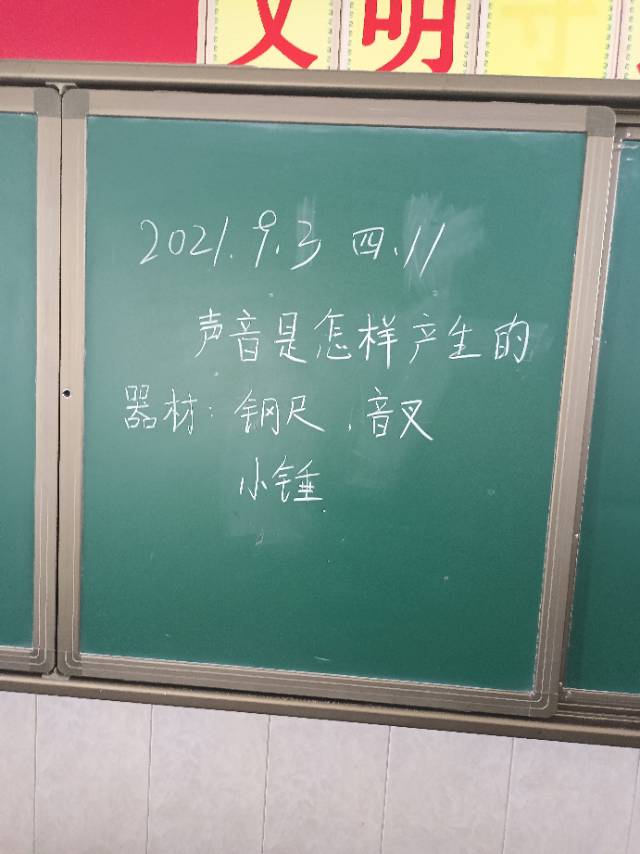 文明
2021.9.3 四.11
声音是怎样产生的
器材:钢尺、音叉
小锤